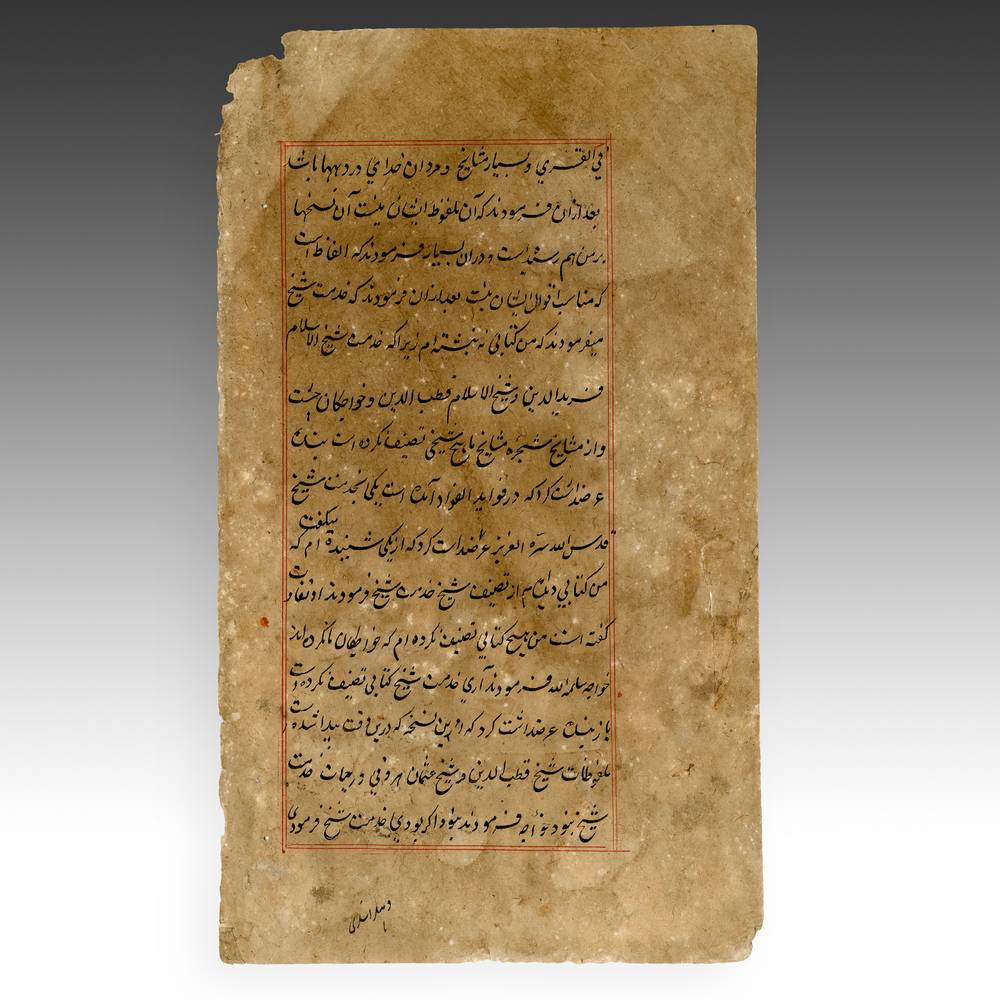 في القري و بسیار مشایخ و مردان خدای در دیهها باشند
بعد ازان فرمودند که آن ملفوظ ایشان نیست آن نسخها
بر من هم رسیده است و دران بسیار فرمودند که الفاظ است
که مناسب اقوال ایشان نیست بعد ازان فرمودند که خدمت شیخ
میفرمودند که من کتابی ننبشته ام زیرا که خدمت شیخ الاسلام
فریدالدین و شیخ الاسلام قطب الدین و خواجکان چشت
و از مشایخ شجره مشایخ ما هیچ شیخی تصنیف نکرده است بنده
عرضداشت کرد که در فواید الفواد آمده است یکی بخدمت شیخ
قدس الله سره العزیز عرضداشت کرد که از یکی شنیده ام که میکفت
من کتابی دیده ام از تصنیف شیخ خدمت شیخ فرمودند او تفاوت
کفته است من هیچ کتابی تصنیف نکرده ام که خواجکان ما نکرده اند
خواجه سلمه الله فرمودند آری خدمت شیخ کتابی تصنیف نکرده است
باز بنده عرضداشت کرد که این نسخه که درین وقت پیدا شده است
ملفوظات شیخ قطب الدین و شیخ عثمان هرونی در حیات خدمت
شیخ نبود خواجه فرمودند نبود اکر بودی خدمت شیخ فرمودی